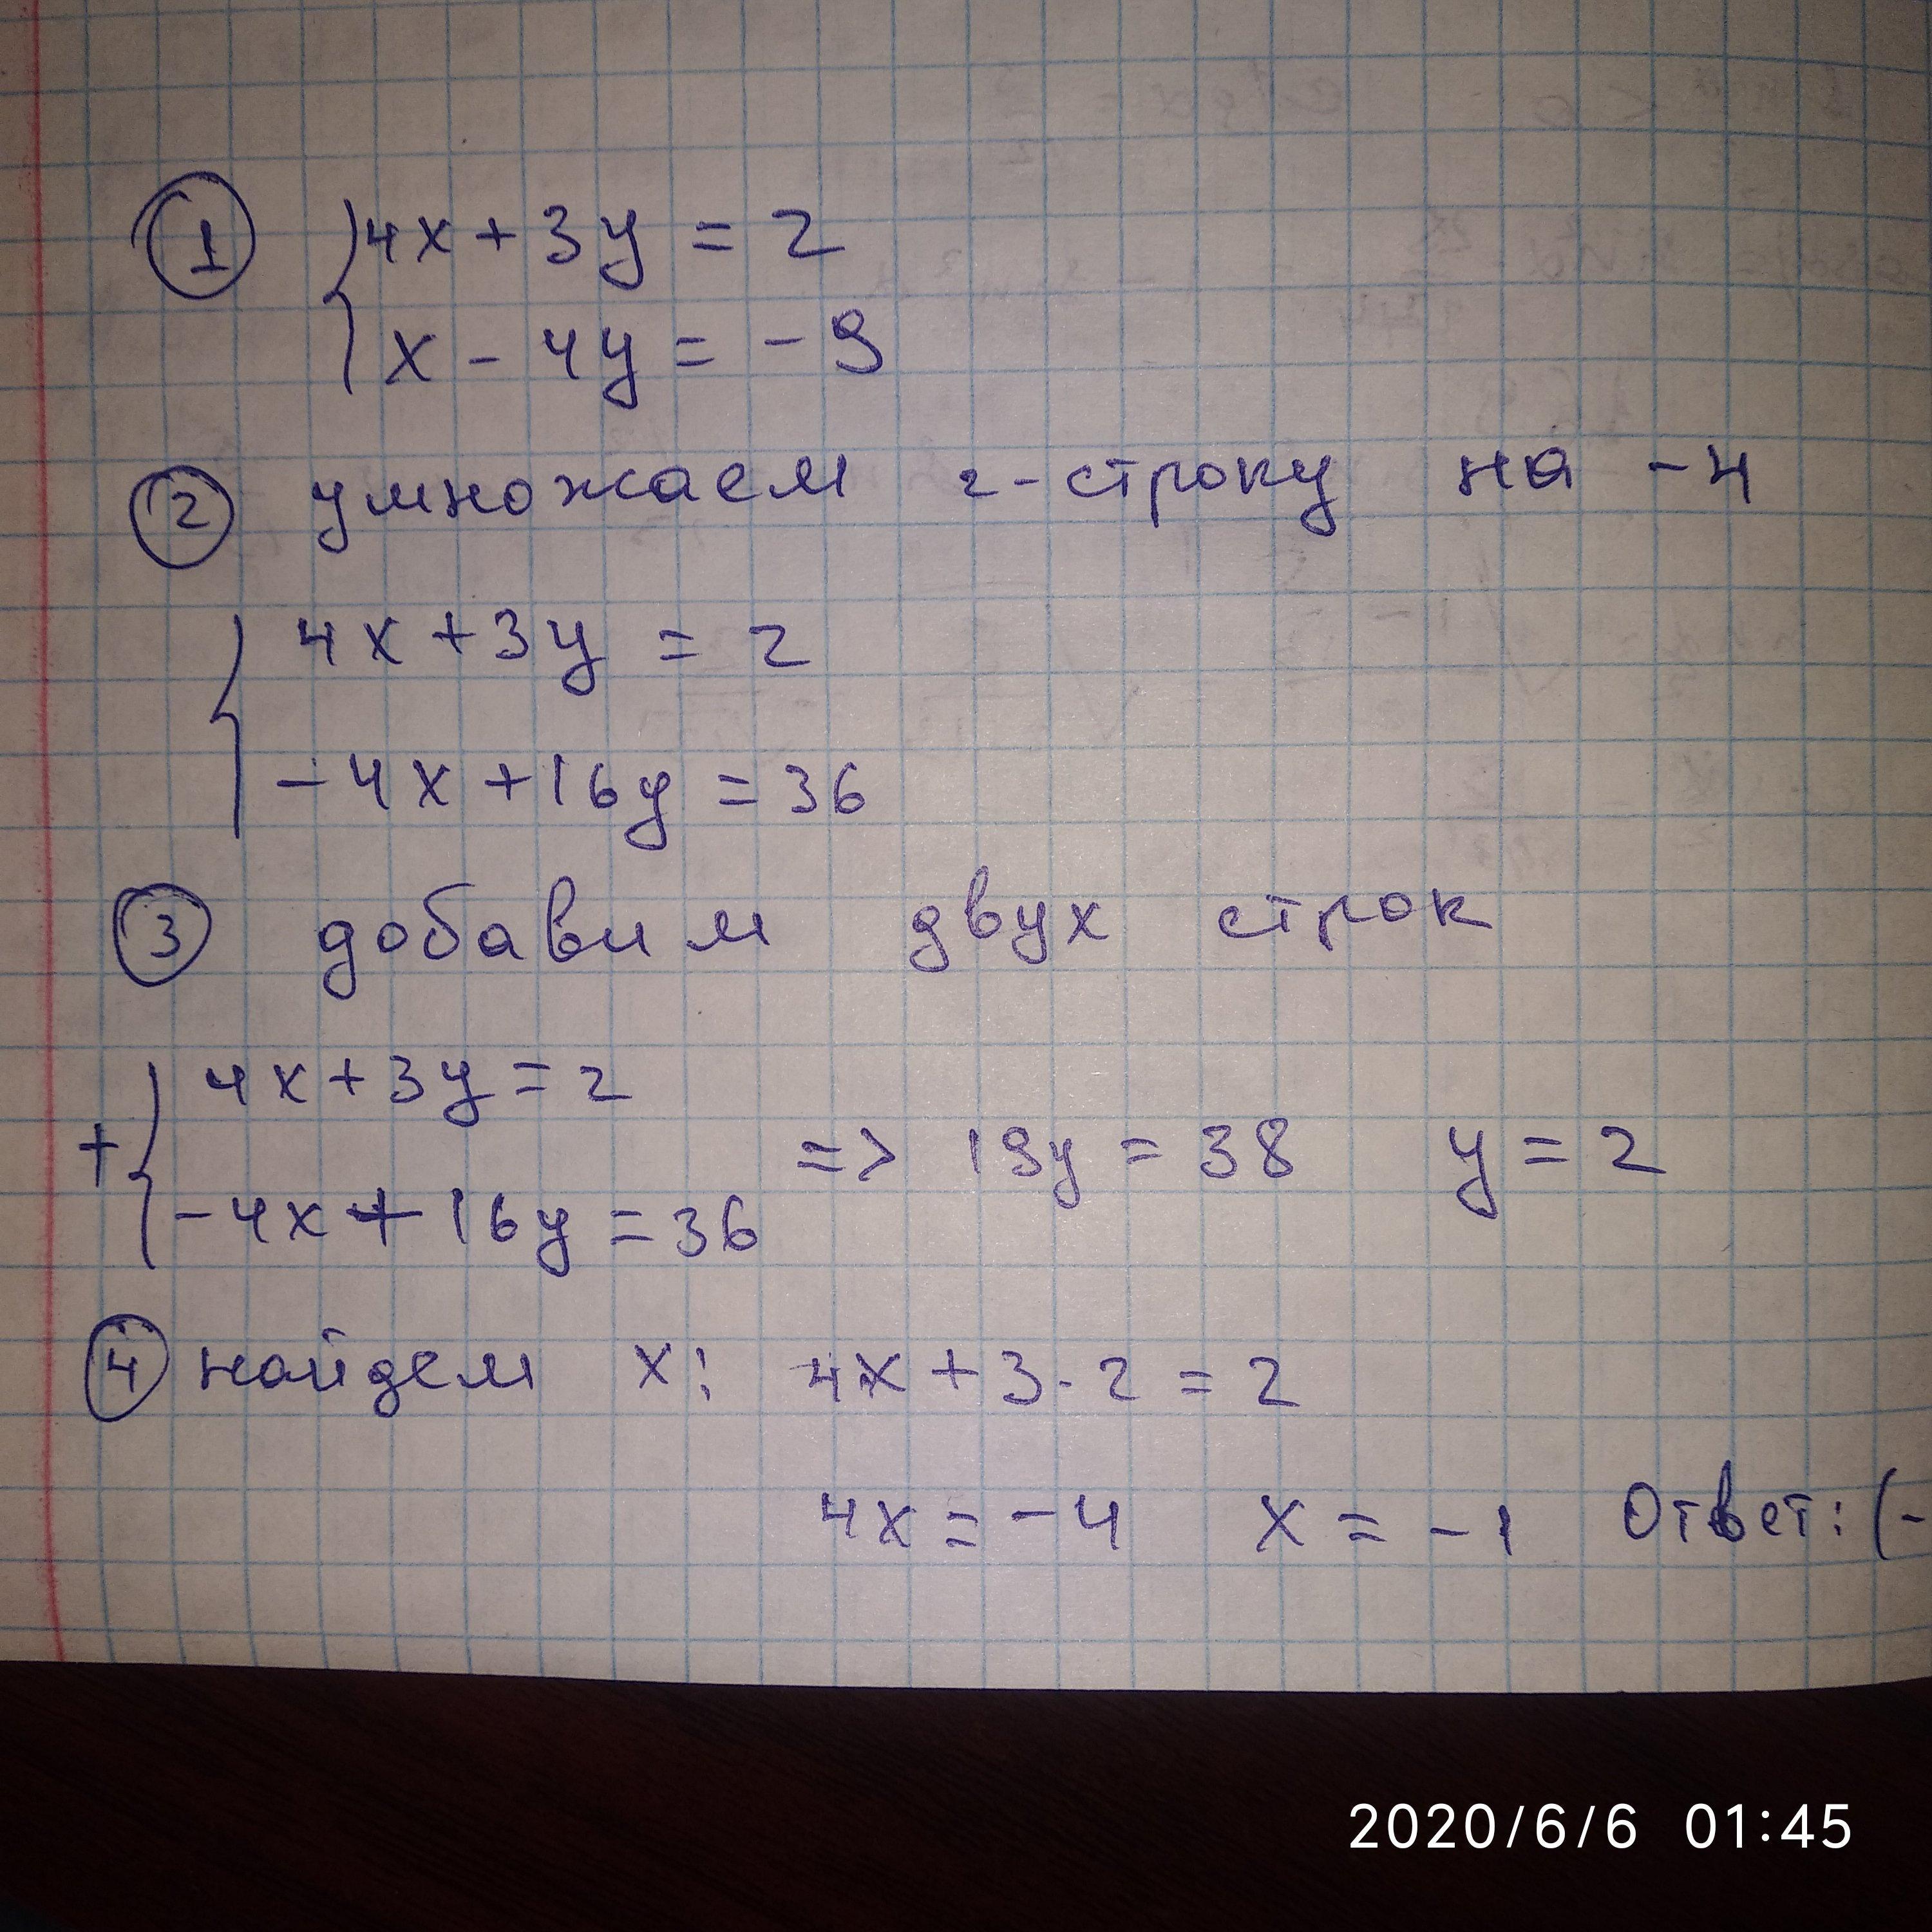 1 4x + 3y = 2
x - 4y = -9
2 умножаем 2-строку на -4
4x + 3y = 2
-4x + 16y = 36
3 добавим двух строк
+ 4x + 3y = 2
-4x + 16y = 36
=> 19y = 38 y = 2
4 найдем x: 4x + 3·2 = 2
4x = -4 x = -1 Ответ: (-
2020/6/6 01:45